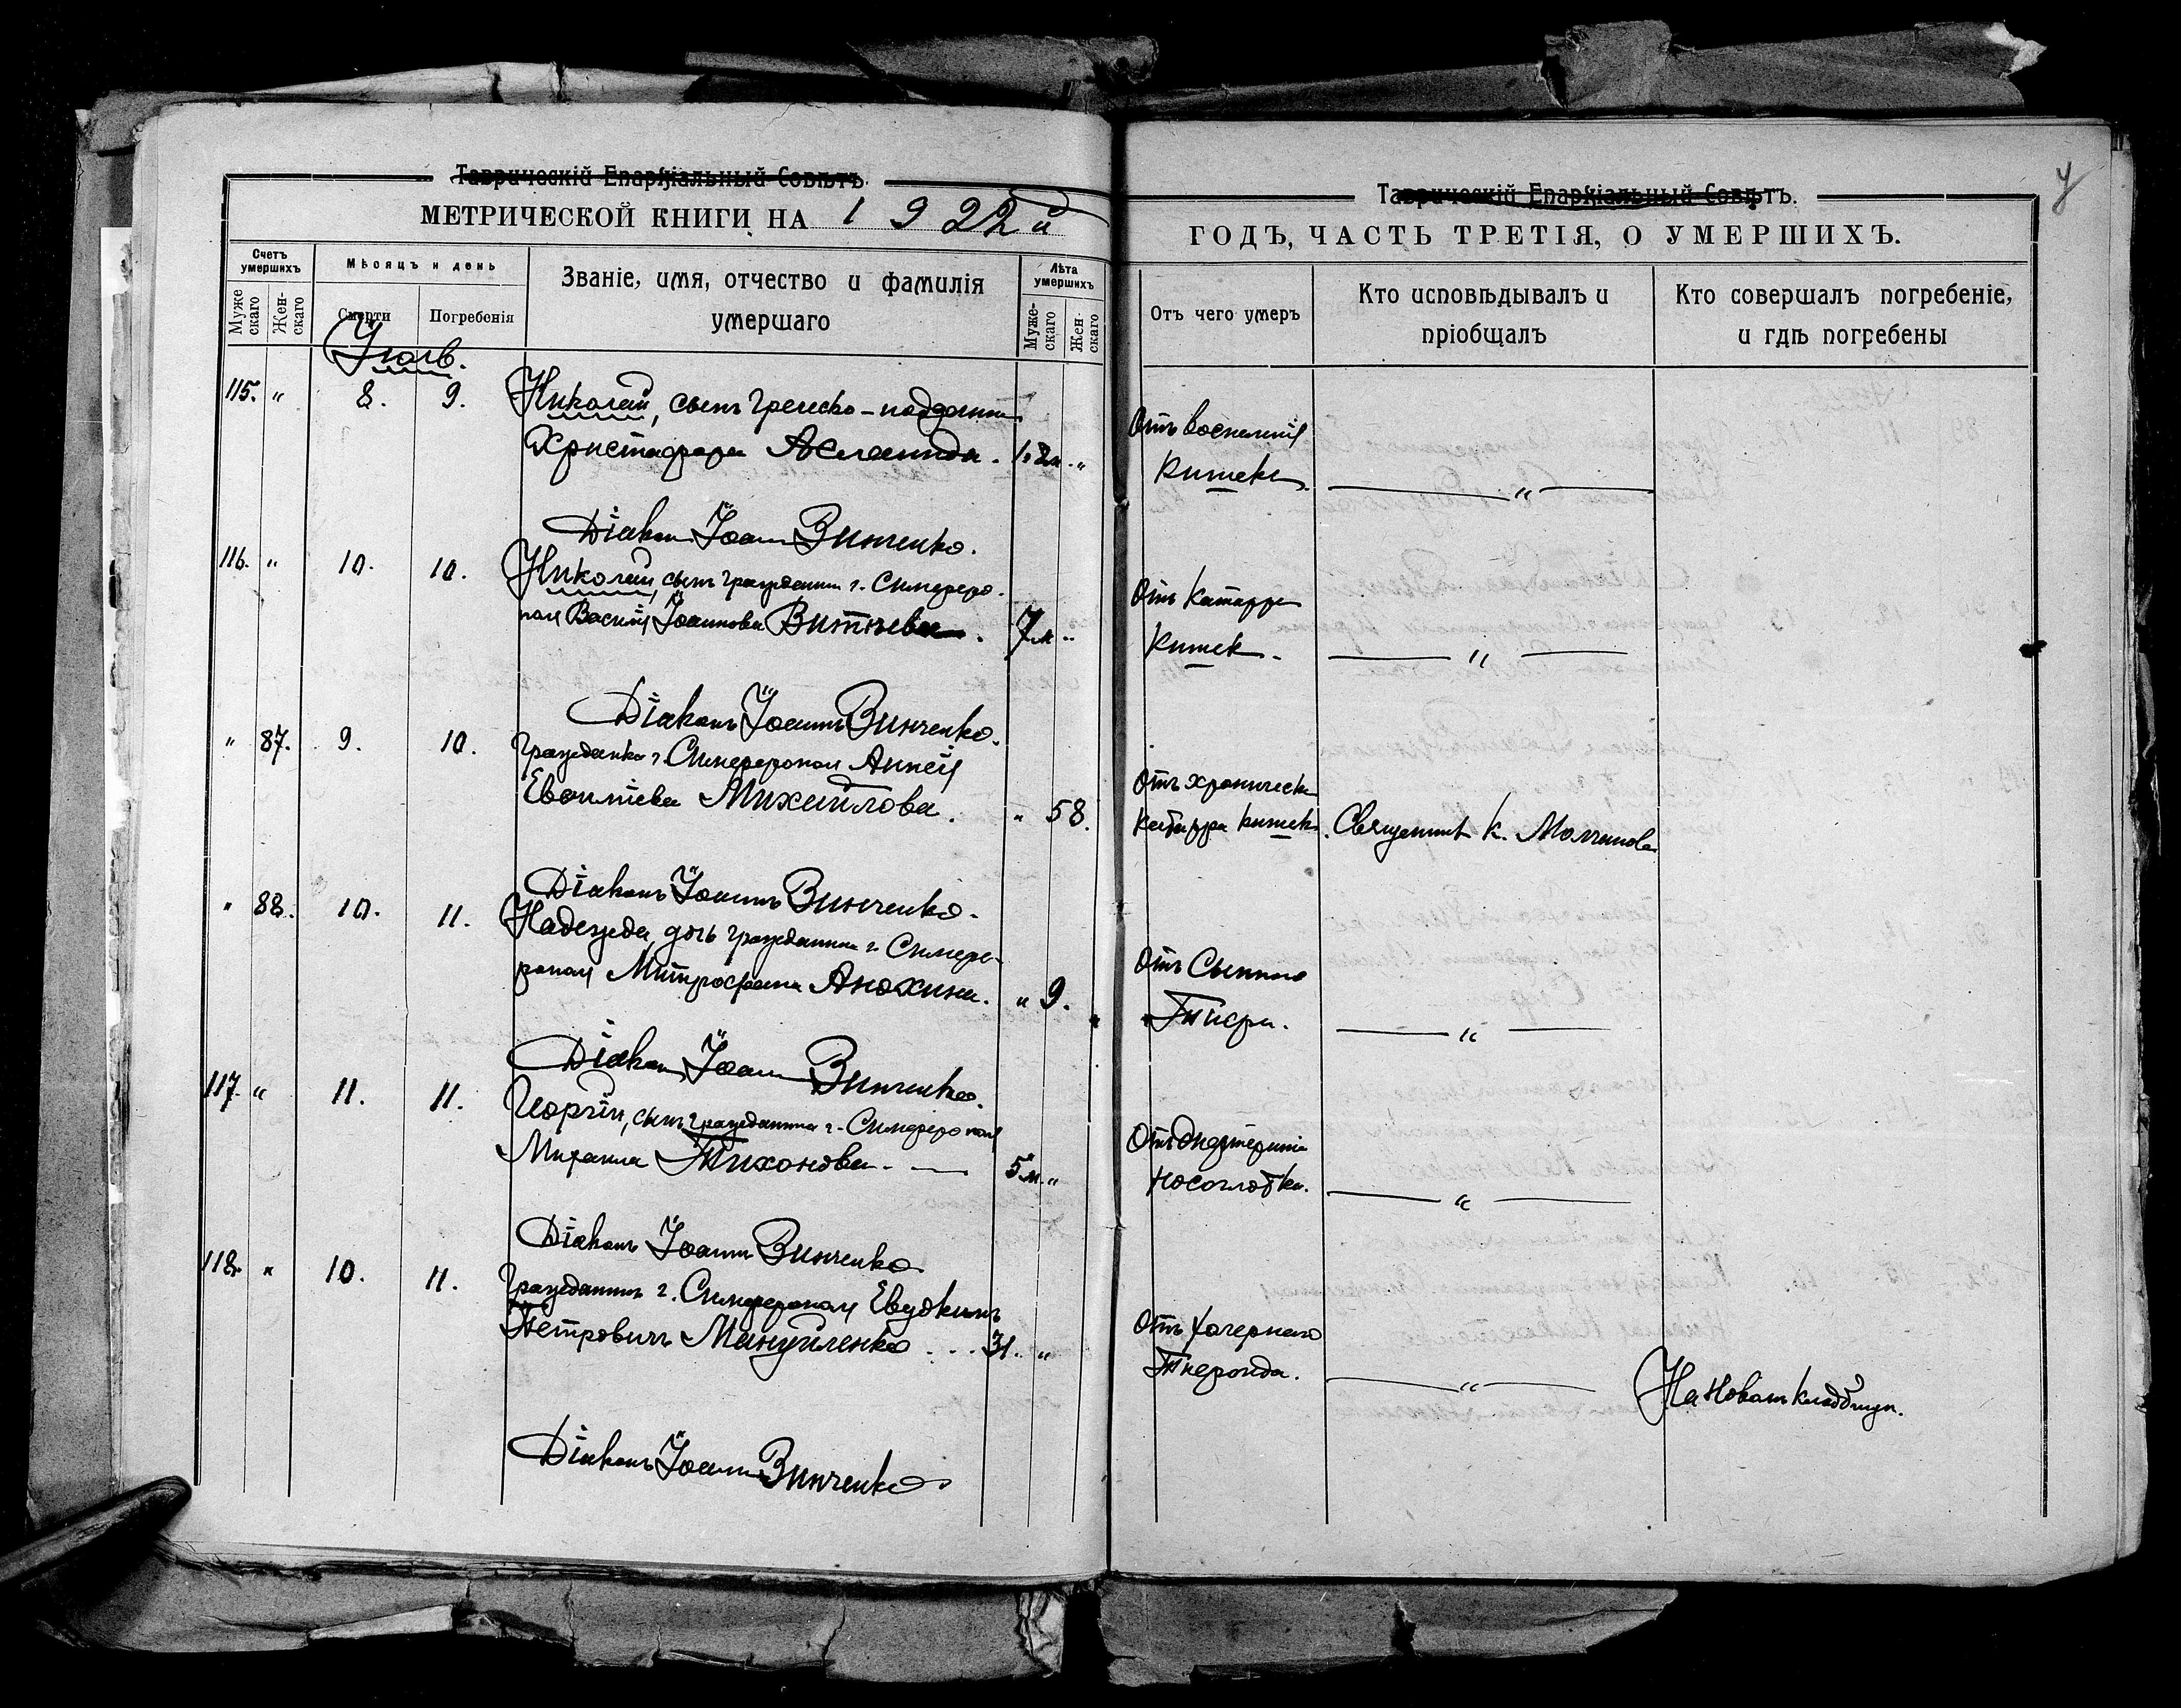 Таврическій Епархіальный Совѣтъ.
МЕТРИЧЕСКОЙ КНИГИ НА 1922й
Счетъ умершихъ
Мужескаго
Женскаго
Мѣсяцъ и день
Смерти
Погребенія
Званіе, имя, отчество и фамилія
умершаго
Лѣта умершихъ
Мужескаго
Женскаго
Іюль.
115. " 8. 9. Николай, сынъ Греческо-подданна
Христофора 1г 2м. "
Діаконъ Іоаннъ Винченко.
116. " 10. 10. Николай, сынъ гражданина г. Симферо-
поля Василія Іоаннова 7м "
Діаконъ Іоаннъ Винченко.
" 87. 9. 10. Гражданка г. Симферополя
Михайлова. " 58.
Діаконъ Іоаннъ Винченко.
" 88. 10. 11. Надежда, дочь гражданина г. Симфе-
рополя Митрофана Анохина. " 9.
Діаконъ Іоаннъ Винченко.
117. " 11. 11. Георгій, сынъ гражданина г. Симферополя
Михаила Тихонова. 5м. "
Діаконъ Іоаннъ Винченко
118. " 10. 11. Гражданинъ г. Симферополя Евдокимъ
Петровичъ Мануйленко . . . 31. "
Діаконъ Іоаннъ Винченко
Таврическій Епархіальный Совѣтъ.
ГОДЪ, ЧАСТЬ ТРЕТІЯ, О УМЕРШИХЪ.
Отъ чего умеръ
Кто исповѣдывалъ и
пріобщалъ
Кто совершалъ погребеніе,
и гдѣ погребены
Отъ воспаленія
кишекъ. "
Отъ катарра
кишек. "
Отъ хроническ
катарра кишекъ. Священник К. Молчанов
Отъ Сыпного
Тифа. "
Отъ дифтерита
носоглотки. "
Отъ холернаго
Тифоида. " На Новомъ кладбищѣ.